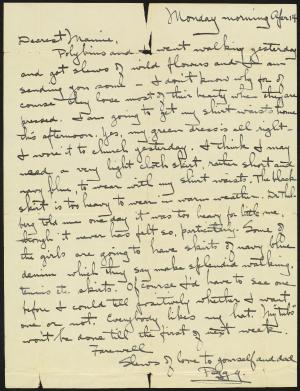 Monday morning Apr 14
Dearest Mamie,
Polykins and I went walking yesterday
and got slews of wild flowers and I am
sending you some - I don't know why for of
course they lose most of their beauty when they are
pressed. I am going to get my shirt waists home
this afternoon. Yes, my green dress is all right -
I wore it to church yesterday. I think I may
need a very light cloth skirt, rather short and
navy blue, to wear with my shirt waists. The black
skirt is too heavy to wear in warm weather. Dr.
told me one day it was too heavy for little me,
though it never has felt so, particularly. Some of
the girls are going to have skirts of navy blue
denim which they say make splendid walking,
tennis etc. skirts. Of course I'd have to see one
before I could tell positively whether I want
one or not. Everybody likes my hat. My
won't be done till the first of next week.
Farewell
Slews of love to yourself and dad
Peggy